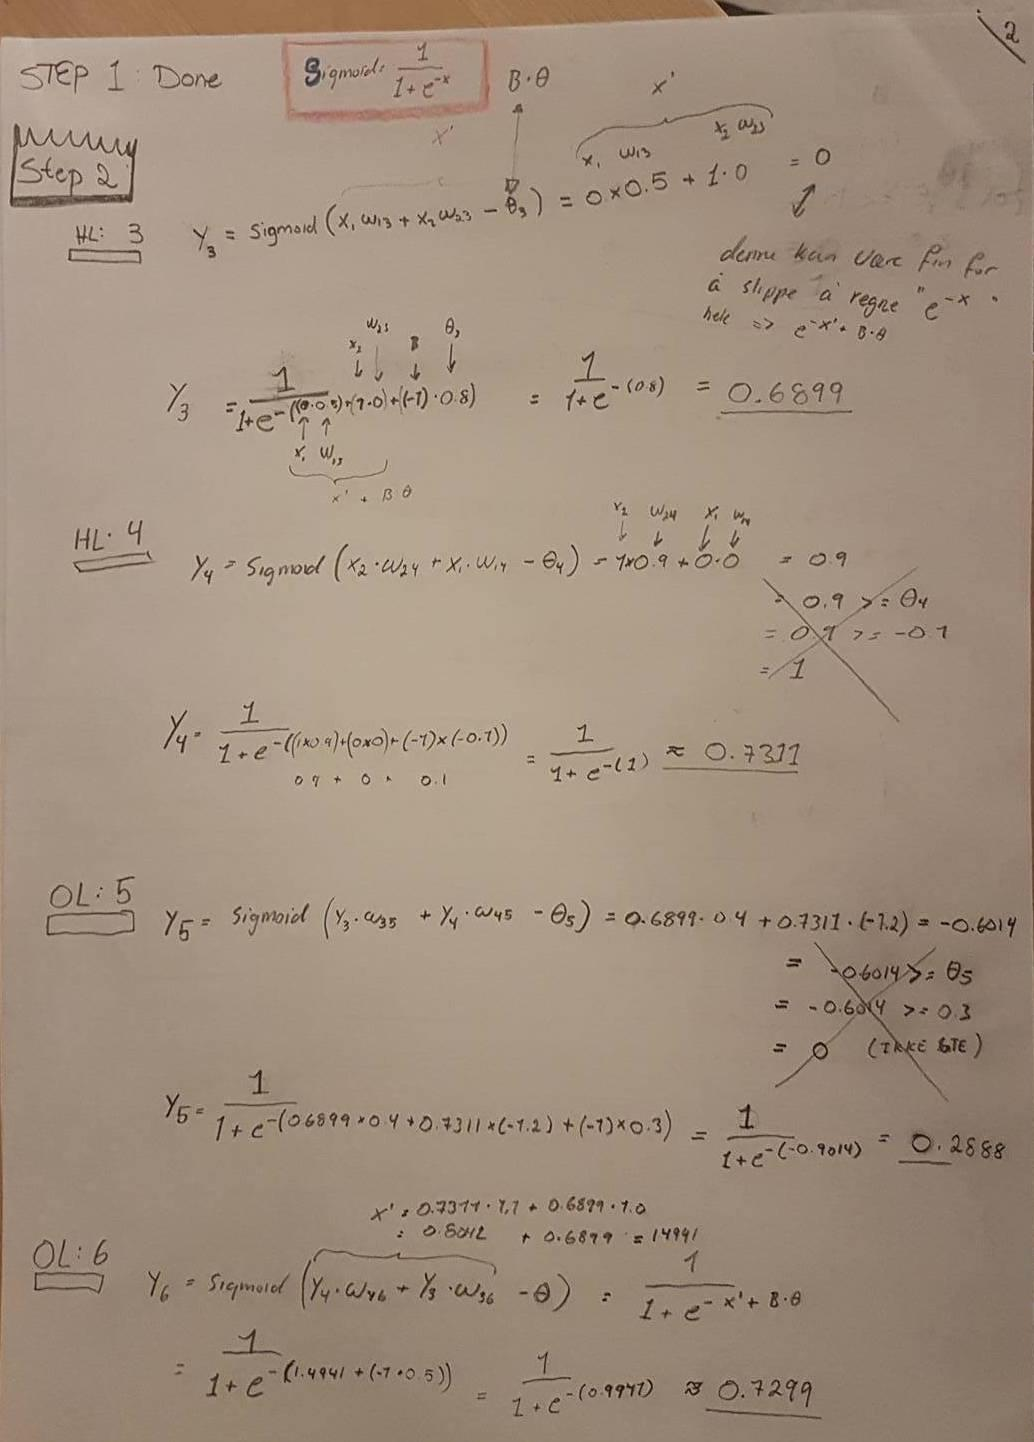 2
STEP 1: Done
Sigmoid: 1 / (1 + e^-x)
B·θ
x'
x'
x₁ w₁₃
x₂ w₂₃
Step 2
HL: 3
Y₃ = Sigmoid (x₁ w₁₃ + x₂ w₂₃ - θ₃) = 0 × 0.5 + 1·0 = 0
denne kan være fin for
å slippe å regne "e^-x"
hele => e^-x' + B·θ
x₂ w₂₃ B θ₃
Y₃ = 1 / (1+e^-((0·0.5)+(1·0)+(-1)·0.8)) = 1 / (1+e^-(0.8)) = 0.6899
x₁ w₁₃
x' + B θ
HL· 4
x₂ w₂₄ x₁ w₁₄
Y₄ = Sigmoid (x₂·w₂₄ + x₁·w₁₄ - θ₄) = 1×0.9 + 0·0 = 0.9
= 0.9 >= θ₄
= 0.9 >= -0.1
= 1
Y₄ = 1 / (1 + e^-((1×0.9)+(0×0)+(-1)×(-0.1))) = 1 / (1 + e^-(1)) ≈ 0.7311
0.9 + 0 + 0.1
OL: 5
Y₅ = Sigmoid (Y₃·w₃₅ + Y₄·w₄₅ - θ₅) = 0.6899·0.4 + 0.7311·(-1.2) = -0.6014
= -0.6014 >= θ₅
= -0.6014 >= 0.3
= 0 (IKKE STE)
Y₅ = 1 / (1 + e^-(0.6899×0.4+0.7311×(-1.2)+(-1)×0.3)) = 1 / (1+e^-(-0.9014)) = 0.2888
x' = 0.7311·1,1 + 0.6899·1.0
= 0.8042 + 0.6899 = 14941
OL: 6
Y₆ = Sigmoid (Y₄·w₄₆ + Y₃·w₃₆ - θ) = 1 / (1 + e^- x' + B·θ)
= 1 / (1 + e^-(1.4941 + (-1·0.5))) = 1 / (1 + e^-(0.9941)) ≈ 0.7299